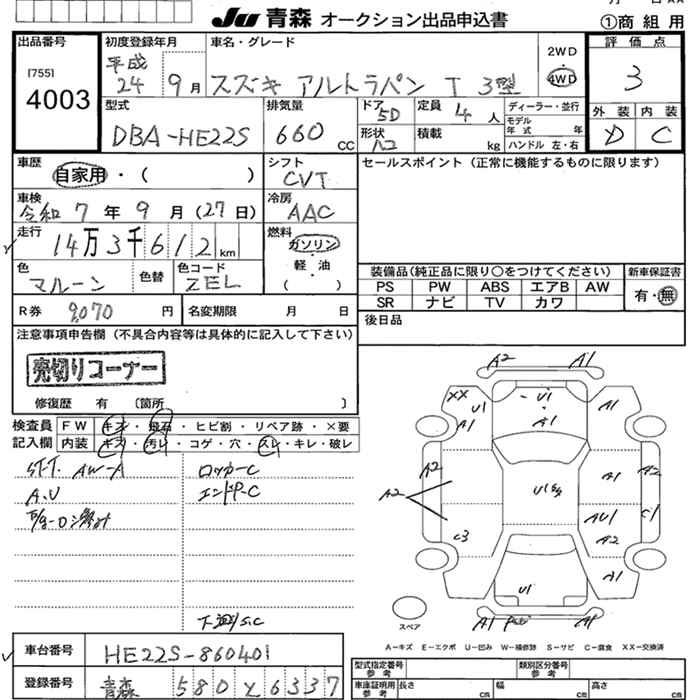 Ju 青森 オークション出品申込書
①商組用
出品番号
(755)
4003
初度登録年月
平成
24 9月
車名・グレード
スズキ アルトラパン T 3型
2WD
4WD
評価点
3
外装 内装
D C
型式
DBA-HE22S
排気量
660 CC
ドア
5D
定員
4人
形状
ハコ
積載
kg
ディーラー・並行
モデル年式 年
ハンドル 左・右
車歴
自家用・( )
シフト
CVT
セールスポイント(正常に機能するものに限ります)
車検
令和 7年 9月(27日)
冷房
AAC
走行
14万3千612km
燃料
ガソリン
軽油
( )
色
マルーン
色替
色コード
ZEL
装備品(純正品に限り○をつけてください)
新車保証書
PS PW ABS エアB AW
SR ナビ TV カワ
有・無
R券 9,070 円
名変期限 月 日
後日品
注意事項申告欄(不具合内容等は具体的に記入して下さい)
売切りコーナー
修復歴 有 〔箇所 〕
検査員
記入欄
FW キズ・飛石・ヒビ割・リペア跡・×要
内装 キズ・汚レ・コゲ・穴・スレ・キレ・破レ
ST.T. AW-A
ロッカーC
A.U
エンドP-C
下廻りS.C
A2 A1
XX U1 A1
U1
A1
A1
A2
A2
U1
A1
A2
C1
C3
AU1
A2
U1
A1
A1
A1
スペア
A-キズ E-エクボ U-凹み W-補修跡 S-サビ C-腐食 XX-交換済
車台番号
HE22S-860401
登録番号
青森 580 と 6337
型式指定番号
参考
類別区分番号
参考
車庫証明用
参考
長さ cm
幅 cm
高さ cm